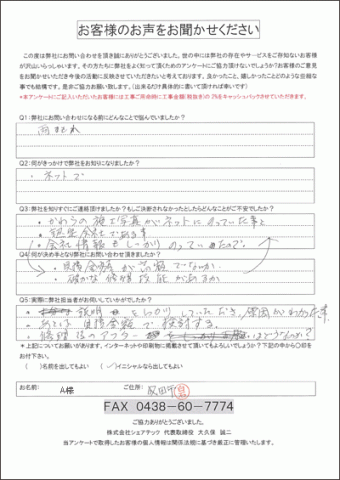 お客様のお声をお聞かせください
この度は弊社にお問い合わせを頂き誠にありがとうございました。世の中には弊社の存在やサービスをご存知ないお客様
が沢山いらっしゃいます。その方たちに弊社をよく知って頂くためのアンケートにご協力頂けないでしょうか？お客様のご意見
をお聞かせいただき今後の活動に反映させていただきたいと考えております。良かったこと、嬉しかったことどのような些細な
事でも結構です。是非ご協力お願い致します。（出来るだけ具体的に書いて頂ければ幸いです）
*本アンケートにご記入いただいたお客様には工事ご用命時に工事金額(税抜き)の2%をキャッシュバックさせていただきます。
Q1:弊社にお問い合わせになる前にどんなことで悩んでいましたか？
雨もれ
Q2:何がきっかけで弊社をお知りになりましたか？
・ネットで
Q3:弊社を知りすぐにご連絡頂けましたか？もしご決断されなかったとしたらどんなことがご不安でしたか？
・かわらの施工写真がネットにのっていた事と
・会社情報もしっかりのっていたので。
Q4:何が決め手となり弊社にお問い合わせ頂きましたか？
・見積金額が高額でないか
・確かな修理技能があるか
Q5:実際に弊社担当者がお伺いしていかがでしたか？
説明もしっかりしていただき、原因がわかった事。
あとは見積金額で検討する。
・修理後のアフター
*上記についてお願いがあります。インターネットや印刷物に掲載させて頂いてもよろしいでしょうか？下記の中から〇印を
お付け下さい。
（　）名前を出してもよい　（✓）イニシャルなら出してもよい
お名前：　A様　ご住所：　成田市
FAX 0438-60-7774
ご協力ありがとうございました。
株式会社シェアテック　代表取締役　大久保　誠二
当アンケートで取得したお客様の個人情報は関係法規に基づき厳正に管理いたします。